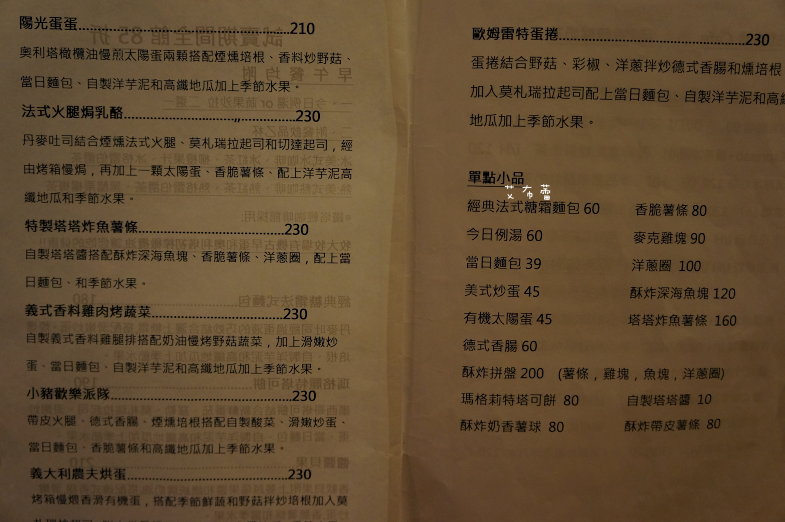 陽光蛋蛋............................................................210
奧利塔橄欖油慢煎太陽蛋兩顆搭配煙燻培根、香料炒野菇、
當日麵包、自製洋芋泥和高纖地瓜加上季節水果。
法式火腿焗乳酪............................................230
丹麥吐司結合煙燻法式火腿、莫札瑞拉起司和切達起司，經
由烤箱慢焗，再加上一顆太陽蛋、香脆薯條、配上洋芋泥高
纖地瓜和季節水果。
特製塔塔炸魚薯條......................................230
自製塔塔醬搭配酥炸深海魚塊、香脆薯條、洋蔥圈，配上當
日麵包、和季節水果。
義式香料雞肉烤蔬菜...................................230
自製義式香料雞腿排搭配奶油慢烤野菇蔬菜，加上滑嫩炒
蛋、當日麵包、自製洋芋泥和高纖地瓜加上季節水果。
小豬歡樂派隊...............................................230
帶皮火腿、德式香腸、煙燻培根搭配自製酸菜、滑嫩炒蛋、
當日麵包、香脆薯條和高纖地瓜加上季節水果。
義大利農夫烘蛋...........................................230
烤箱慢煨香滑有機蛋，搭配季節鮮蔬和野菇拌炒培根加入莫
歐姆雷特蛋捲................................................230
蛋捲結合野菇、彩椒、洋蔥拌炒德式香腸和燻培根
加入莫札瑞拉起司配上當日麵包、自製洋芋泥和高纖
地瓜加上季節水果。
單點小品
艾布蕾
經典法式糖霜麵包 60 香脆薯條 80
今日例湯 60 麥克雞塊 90
當日麵包 39 洋蔥圈 100
美式炒蛋 45 酥炸深海魚塊 120
有機太陽蛋 45 塔塔炸魚薯條 160
德式香腸 60
酥炸拼盤 200 (薯條，雞塊，魚塊，洋蔥圈)
瑪格莉特塔可餅 80 自製塔塔醬 10
酥炸奶香薯球 80 酥炸帶皮薯條 80